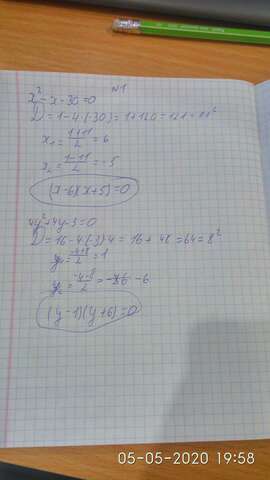 N1
x² - x - 30 = 0
D = 1 - 4·(-30) = 1 + 120 = 121 = 11²
x₁ = (1+11)/2 = 6
x₂ = (1-11)/2 = -5
(x-6)(x+5) = 0
4y² + 4y - 3 = 0
D = 16 - 4·(-3)·4 = 16 + 48 = 64 = 8²
y₁ = (-4+8)/2 = 1
y₂ = (-4-8)/2 = -6
(y-1)(y+6) = 0
05-05-2020 19:58